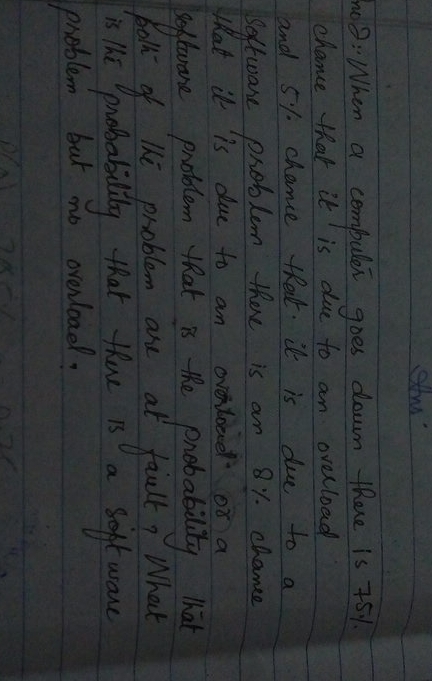 Ans
When a computer goes down there is 75%
chance that it is due to an overload
and 5% chance that it is due to a
software problem there is an 8% chance
that it is due to an overload or a
software problem that is the probability that
both of the problem are at fault? What
is the probability that there is a software
problem but no overload?